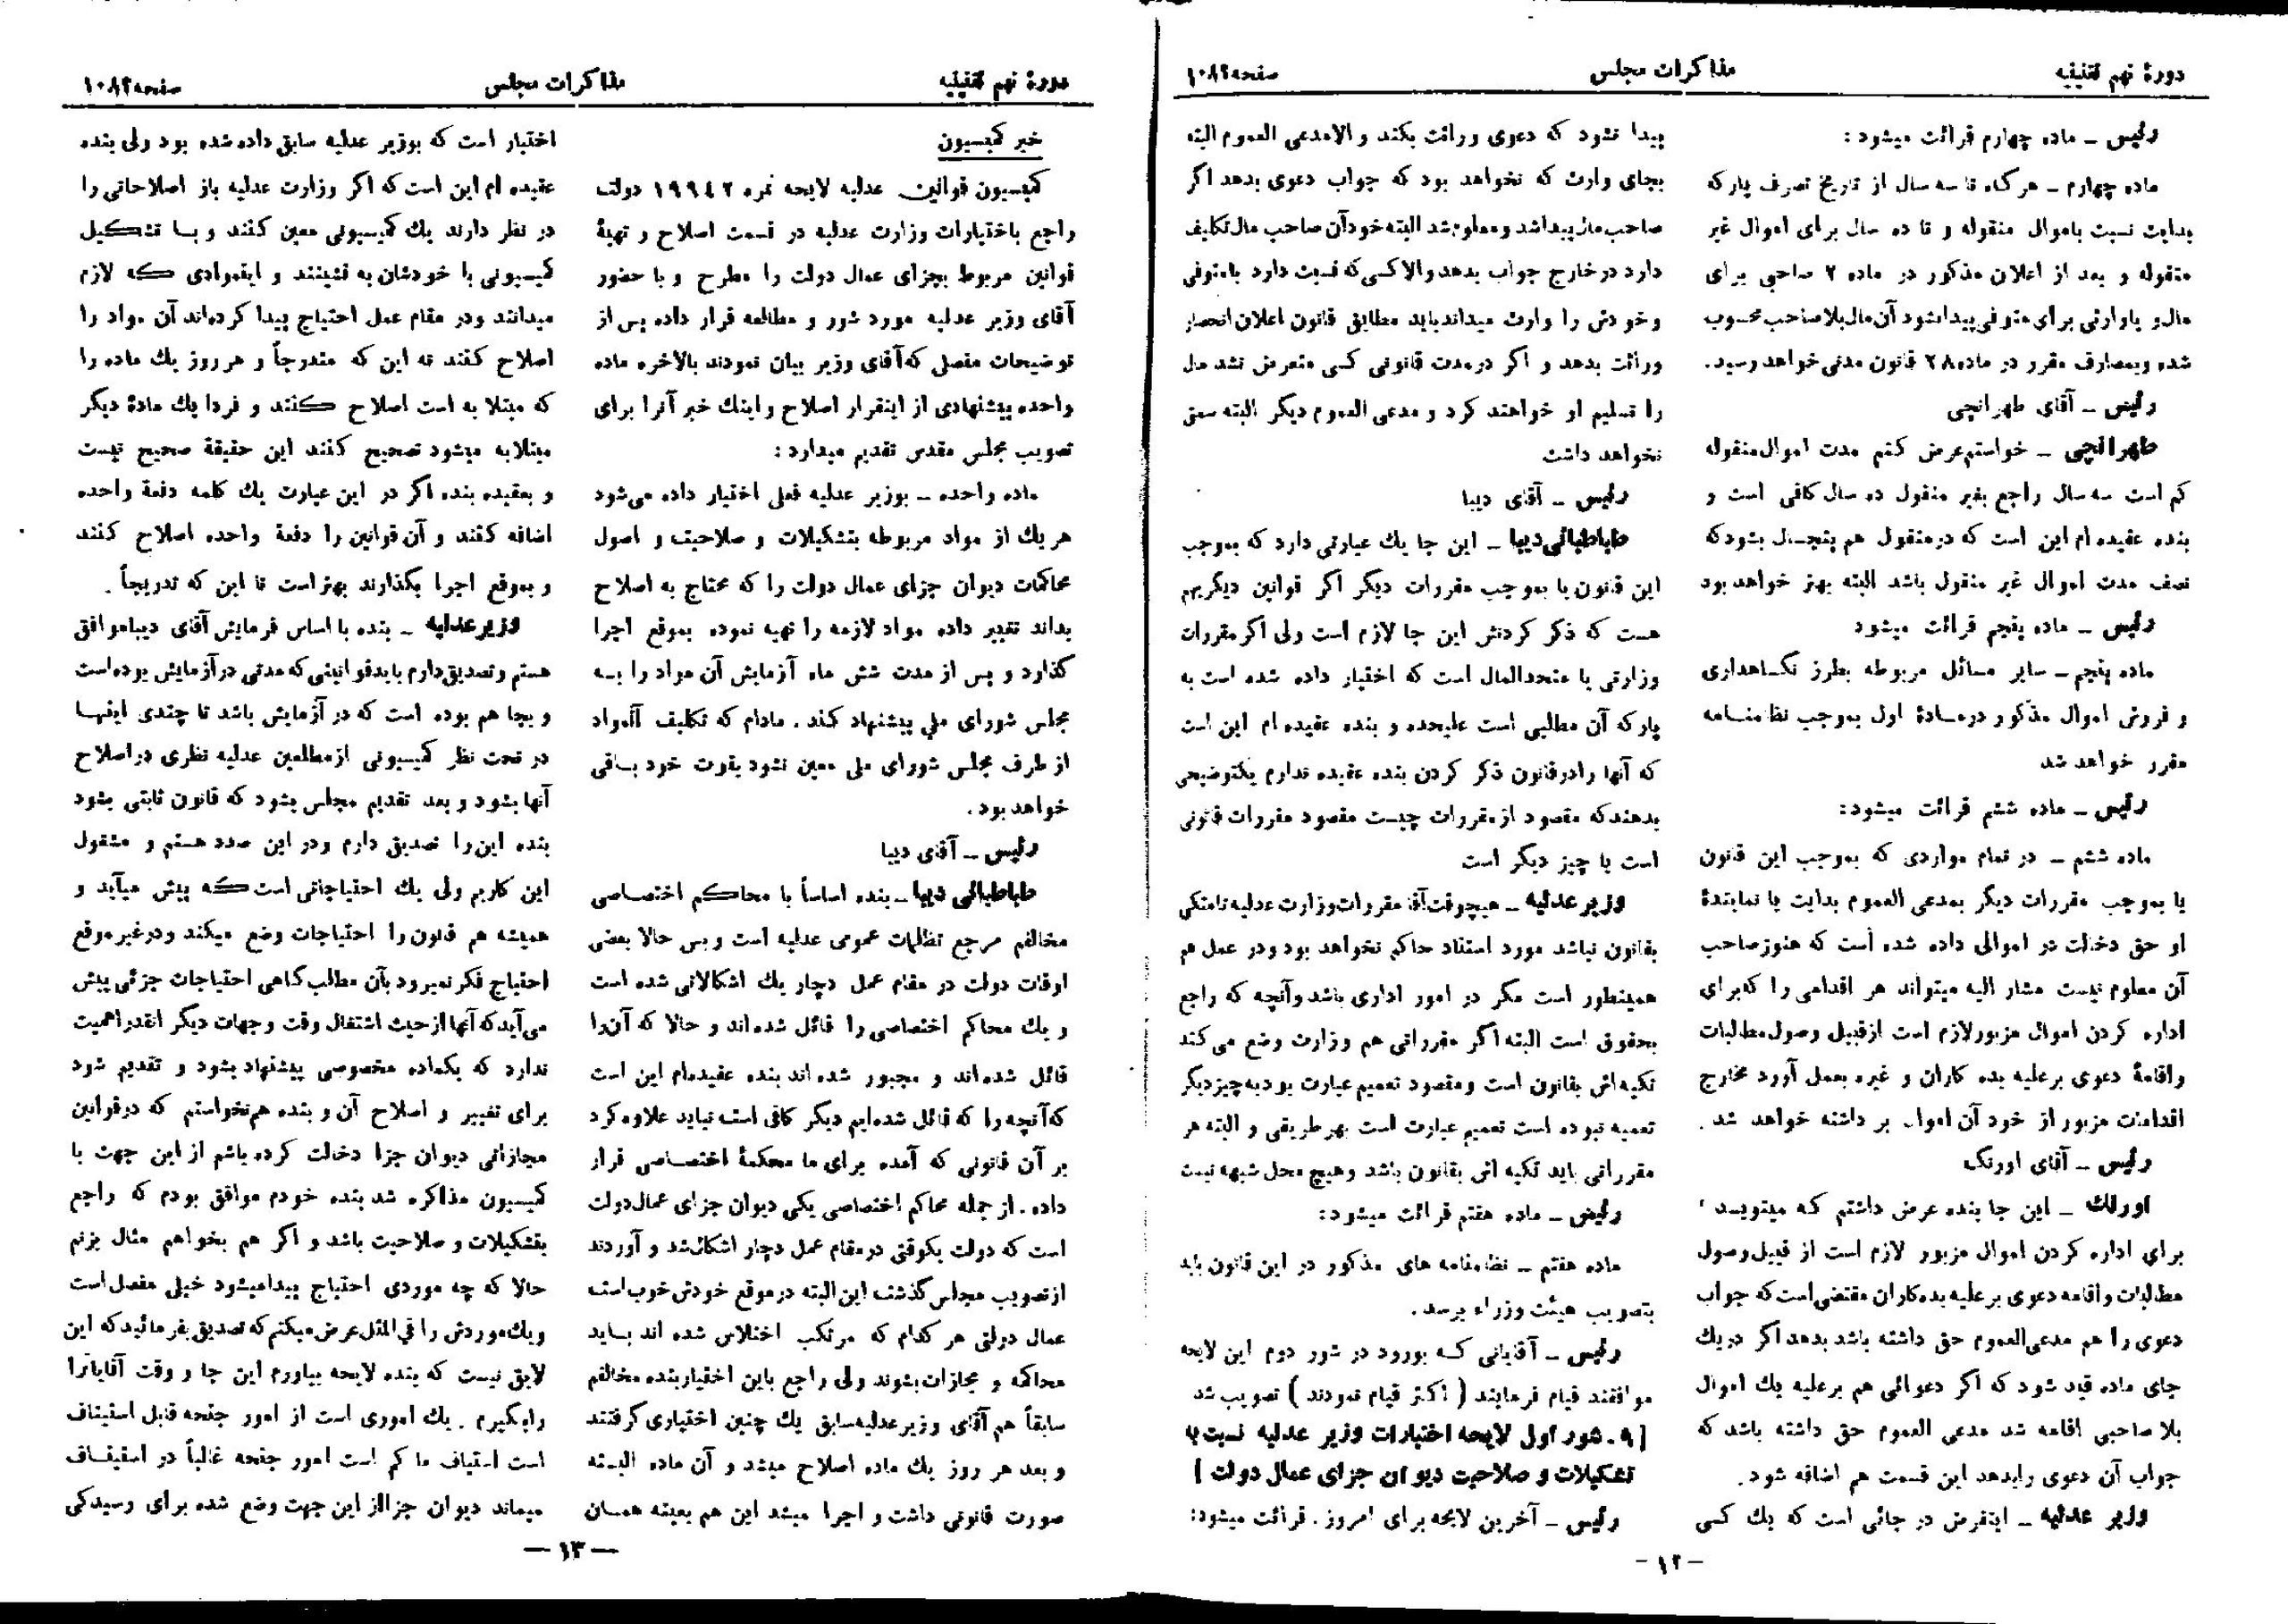 دورهٔ نهم تقنینیه
مذاکرات مجلس
صفحه ۱۰۸۲
رئیس ــ ماده چهارم قرائت میشود:
ماده چهارم ــ هرگاه تا سه سال از تاریخ تصرف پارکه
بدایت نسبت باموال منقوله و تا ده سال برای اموال غیر
منقوله و بعد از اعلان مذکور در ماده ۲ صاحبی برای
مال و یا وارثی برای متوفی پیدا نشود آن مال بلاصاحب محسوب
شده و بمصارف مقرر در ماده ۲۸ قانون مدنی خواهد رسید.
رئیس ــ آقای طهرانچی
طهرانچی ــ خواستم عرض کنم مدت اموال منقوله
کم است سه سال راجع بغیر منقول ده سال کافی است و
بنده عقیده ام این است که در منقول هم پنجسال بشود که
نصف مدت اموال غیر منقول باشد البته بهتر خواهد بود
رئیس ــ ماده پنجم قرائت میشود
ماده پنجم ــ سایر مسائل مربوطه بطرز نگاهداری
و فروش اموال مذکور در مادهٔ اول بموجب نظامنامه
مقرر خواهد شد
رئیس ــ ماده ششم قرائت میشود:
ماده ششم ــ در تمام مواردی که بموجب این قانون
یا بموجب مقررات دیگر بمدعی العموم بدایت یا نمایندهٔ
او حق دخالت در اموالی داده شده است که هنوز صاحب
آن معلوم نیست مشار الیه میتواند هر اقدامی را که برای
اداره کردن اموال مزبور لازم است از قبیل وصول مطالبات
و اقامهٔ دعوی بر علیه بده کاران و غیره بعمل آورد مخارج
اقدامات مزبور از خود آن اموال بر داشته خواهد شد .
رئیس ــ آقای اورنگ
اورنگ ــ این جا بنده عرض داشتم که مینویسد
برای اداره کردن اموال مزبور لازم است از قبیل وصول
مطالبات و اقامه دعوی بر علیه بدهکاران مقتضی است که جواب
دعوی را هم مدعی العموم حق داشته باشد بدهد اگر در یک
جای ماده قید شود که اگر دعوائی هم بر علیه یک اموال
بلا صاحبی اقامه شد مدعی العموم حق داشته باشد که
جواب آن دعوی را بدهد این قسمت هم اضافه شود.
وزیر عدلیه ــ اینفرض در جائی است که یک کسی
پیدا نشود که دعوی وراثت بکند و الا مدعی العموم البته
بجای وارث که نخواهد بود که جواب دعوی بدهد اگر
صاحب مال پیدا شد و معلوم شد البته خود آن صاحب مال تکلیف
دارد در خارج جواب بدهد والا کسی که نسبت دارد با متوفی
و خودش را وارث میداند باید مطابق قانون اعلان انحصار
وراثت بدهد و اگر در مدت قانونی کسی متعرض نشد مال
را تسلیم او خواهند کرد و مدعی العموم دیگر البته سمتی
نخواهد داشت
رئیس ــ آقای دیبا
طباطبائی دیبا ــ این جا یک عبارتی دارد که بموجب
این قانون یا بموجب مقررات دیگر اگر قوانین دیگر بهم
هست که ذکر کردنش این جا لازم است ولی اگر مقررات
وزارتی یا متحدالمال است که اختیار داده شده است به
پارکه آن مطلبی است علیحده و بنده عقیده ام این است
که آنها را در قانون ذکر کردن بنده عقیده ندارم یکتوضیحی
بدهند که مقصود از مقررات چیست مقصود مقررات قانونی
است یا چیز دیگر است
وزیر عدلیه ــ هیچوقت آقا مقررات وزارت عدلیه تا متکی
بقانون نباشد مورد استناد حاکم نخواهد بود و در عمل هم
همینطور است مگر در امور اداری باشد و آنچه که راجع
بحقوق است البته اگر مقرراتی هم وزارت وضع می کند
تکیه اش بقانون است و مقصود تعمیم عبارت بود به چیز دیگر
تعمیه نبوده است تعمیم عبارت است بهر طریقی و البته هر
مقرراتی باید تکیه اش بقانون باشد و هیچ محل شبهه نیست
رئیس ــ ماده هفتم قرائت میشود:
ماده هفتم ــ نظامنامه های مذکور در این قانون باید
بتصویب هیئت وزراء برسد .
رئیس ــ آقایانی که بورود در شور دوم این لایحه
موافقند قیام فرمایند ( اکثر قیام نمودند ) تصویب شد
[ ۹ ـ شور اول لایحه اختیارات وزیر عدلیه نسبت به
تشکیلات و صلاحیت دیوان جزای عمال دولت ]
رئیس ــ آخرین لایحه برای امروز . قرائت میشود:
ــ ۱۲ ــ
دورهٔ نهم تقنینیه
مذاکرات مجلس
صفحه ۱۰۸۳
خبر کمیسیون
کمیسیون قوانین عدلیه لایحه نمره ۱۹۹۴۲ دولت
راجع باختیارات وزارت عدلیه در قسمت اصلاح و تهیهٔ
قوانین مربوط بجزای عمال دولت را مطرح و با حضور
آقای وزیر عدلیه مورد شور و مطالعه قرار داده پس از
توضیحات مفصلی که آقای وزیر بیان نمودند بالاخره ماده
واحده پیشنهادی از اینقرار اصلاح و اینک خبر آنرا برای
تصویب مجلس مقدس تقدیم میدارد :
ماده واحده ــ بوزیر عدلیه فعلی اختیار داده می‌شود
هر یک از مواد مربوطه بتشکیلات و صلاحیت و اصول
محاکمات دیوان جزای عمال دولت را که محتاج به اصلاح
بداند تغییر داده مواد لازمه را تهیه نموده بموقع اجرا
گذارد و پس از مدت شش ماه آزمایش آن مواد را به
مجلس شورای ملی پیشنهاد کند . مادام که تکلیف آنمواد
از طرف مجلس شورای ملی معین نشود بقوت خود باقی
خواهد بود.
رئیس ــ آقای دیبا
طباطبائی دیبا ــ بنده اساساً با محاکم اختصاصی
مخالفم مرجع تظلمات عمومی عدلیه است و بس حالا بعضی
اوقات دولت در مقام عمل دچار یک اشکالاتی شده است
و یک محاکم اختصاصی را قائل شده اند و حالا که آن را
قائل شده‌اند و مجبور شده اند بنده عقیده‌ام این است
که آنچه را که قائل شده‌ایم دیگر کافی است نباید علاوه کرد
بر آن قانونی که آمده برای ما محکمهٔ اختصاصی قرار
داده . از جمله محاکم اختصاصی یکی دیوان جزای عمال دولت
است که دولت یکوقتی در مقام عمل دچار اشکال شد و آوردند
از تصویب مجلس گذشت این البته در موقع خودش خوب است
عمال دولتی هر کدام که مرتکب اختلاس شده اند باید
محاکمه و مجازات بشوند ولی راجع باین اختیار بنده مخالفم
سابقاً هم آقای وزیر عدلیه سابق یک چنین اختیاری گرفتند
و بعد هر روز یک ماده اصلاح میشد و آن ماده البته
صورت قانونی داشت و اجرا میشد این هم بعینه همان
اختیار است که بوزیر عدلیه سابق داده شده بود ولی بنده
عقیده ام این است که اگر وزارت عدلیه باز اصلاحاتی را
در نظر دارند یک کمیسیونی معین کنند و با تشکیل
کمیسیونی با خودشان به نشینند و اینموادی که لازم
میدانند و در مقام عمل احتیاج پیدا کرده‌اند آن مواد را
اصلاح کنند نه این که متدرجاً و هر روز یک ماده را
که مبتلا به است اصلاح کنند و فردا یک مادهٔ دیگر
مبتلا به میشود تصحیح کنند این حقیقة صحیح نیست
و بعقیده بنده اگر در این عبارت یک کلمه دفعة واحده
اضافه کنند و آن قوانین را دفعة واحده اصلاح کنند
و بموقع اجرا بگذارند بهتر است تا این که تدریجاً .
وزیر عدلیه ــ بنده با اساس فرمایش آقای دیبا موافق
هستم و تصدیق دارم باید قوانینی که مدتی در آزمایش بوده است
و بجا هم بوده است که در آزمایش باشد تا چندی اینها
در تحت نظر کمیسیونی از مطلعین عدلیه نظری در اصلاح
آنها بشود و بعد تقدیم مجلس بشود که قانون ثابتی بشود
بنده این را تصدیق دارم و در این صدد هستم و مشغول
این کاریم ولی یک احتیاجاتی است که پیش میآید و
همیشه هم قانون را احتیاجات وضع میکند و در غیر موقع
احتیاج فکر نمیرود بآن مطلب گاهی احتیاجات جزئی پیش
می‌آید که آنها از حیث اشتغال وقت و جهات دیگر انقدر اهمیت
ندارد که یکماده مخصوصی پیشنهاد بشود و تقدیم شود
برای تغییر و اصلاح آن و بنده هم نخواستم که در قوانین
مجازاتی دیوان جزا دخالت کرده باشم از این جهت با
کمیسیون مذاکره شد بنده خودم موافق بودم که راجع
بتشکیلات و صلاحیت باشد و اگر هم بخواهم مثال بزنم
حالا که چه موردی احتیاج پیدا میشود خیلی مفصل است
و یک موردش را فی المثل عرض میکنم که تصدیق بفرمائید که این
لایق نیست که بنده لایحه بیاورم این جا و وقت آقایانرا
را بگیرم . یک اموری است از امور جنحه قابل استیناف
است استیناف ما کم است امور جنحه غالباً در استیناف
میماند دیوان جزا از این جهت وضع شده برای رسیدگی
ــ ۱۳ ــ